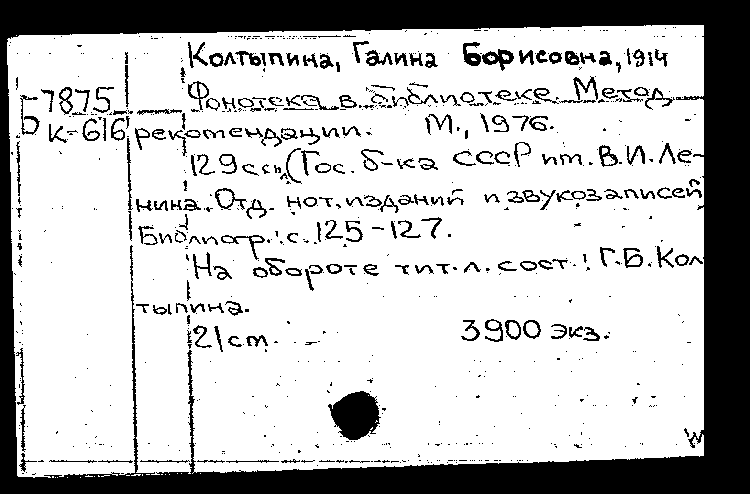 Колтыпина, Галина Борисовна, 1914
-7875 Фонотека в библиотеке. Метод.
К-616 рекомендации. М., 1976.
129 с. (Гос. б-ка СССР им. В.И. Ле-
нина. Отд. нот. изданий и звукозаписей
Библиогр.: с. 125-127.
На обороте тит. л. сост.: Г.Б. Кол-
тыпина.
21 cm. 3900 экз.